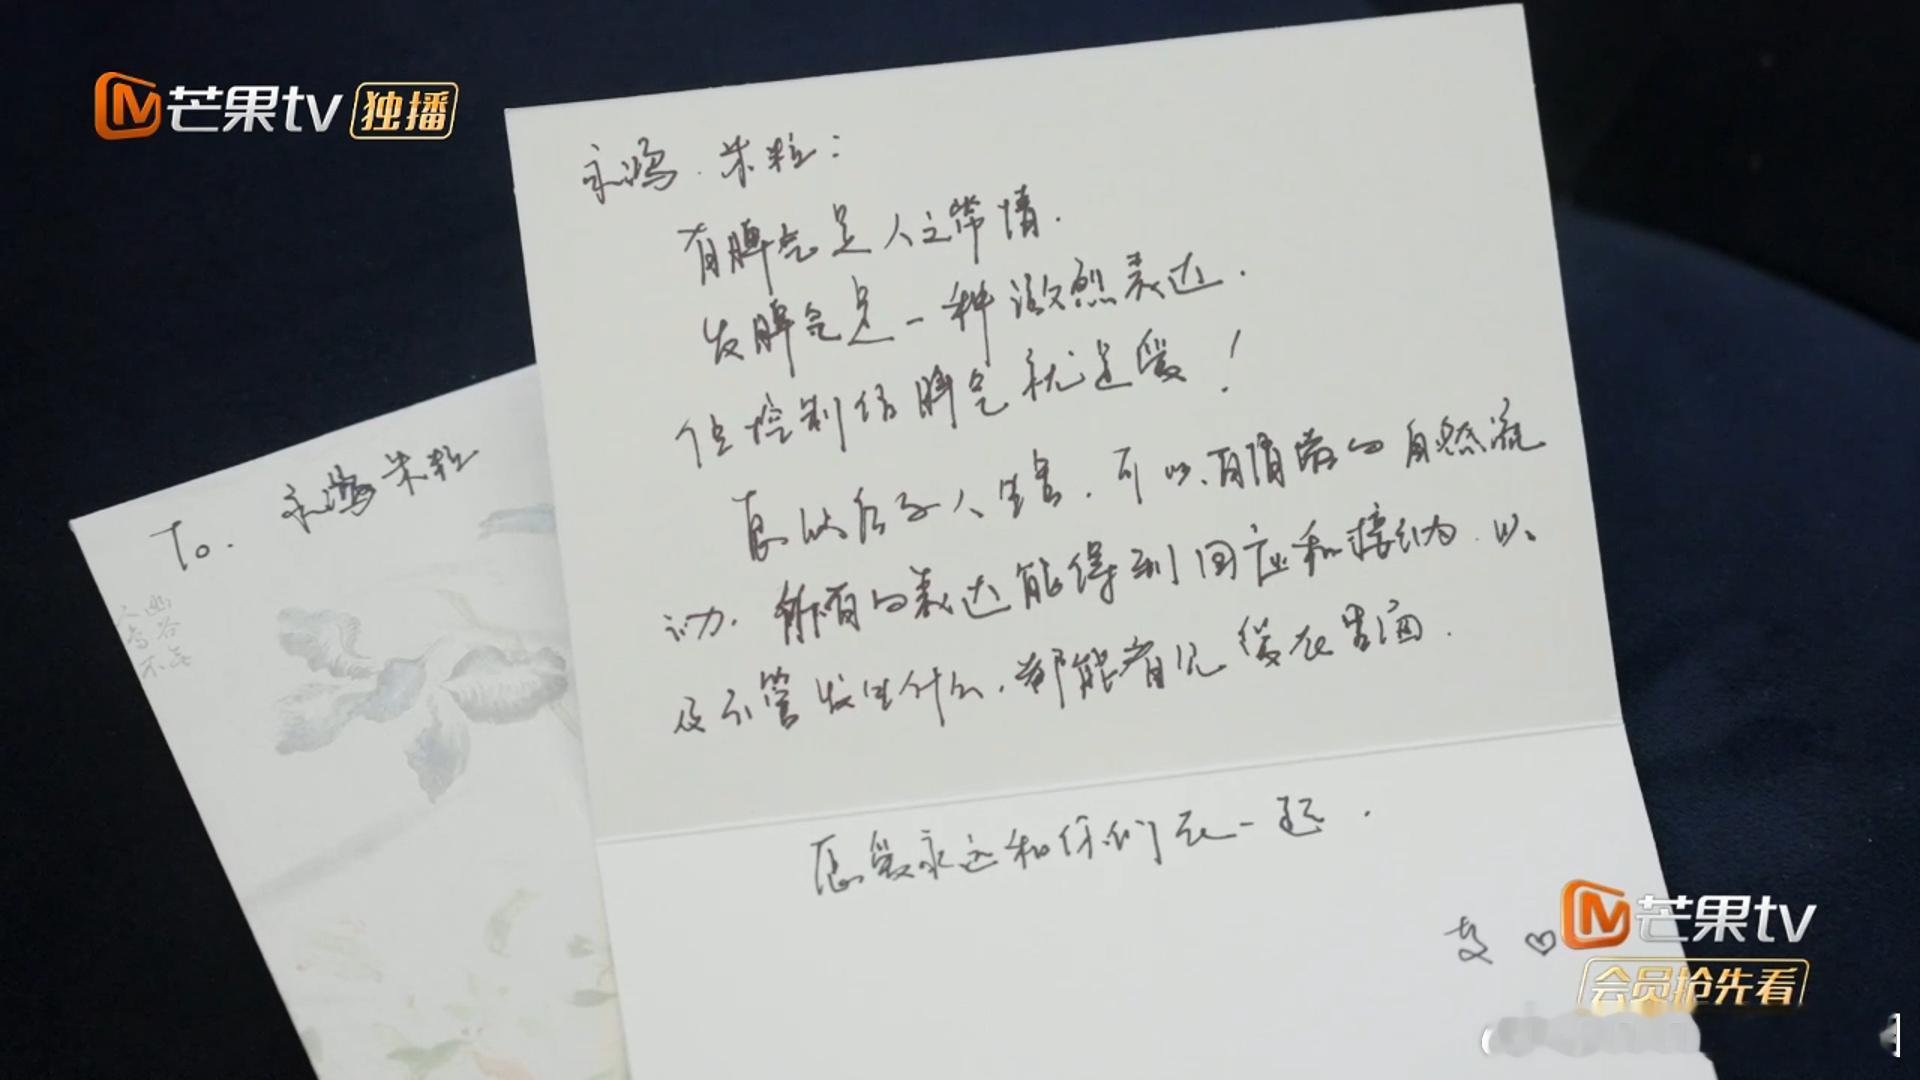 芒果tv 独播
永鸿·米粒:
有脾气是人之常情.
发脾气是一种激烈表达.
但控制住脾气就是爱!
愿以后的人生里,可以有情感的自然流
动.所有的表达能得到回应和接纳.以
及不管发生什么,都能看见爱在背面.
愿爱永远和你们在一起.
♡
To. 永鸿米粒
幽谷
芒果tv
会员抢先看